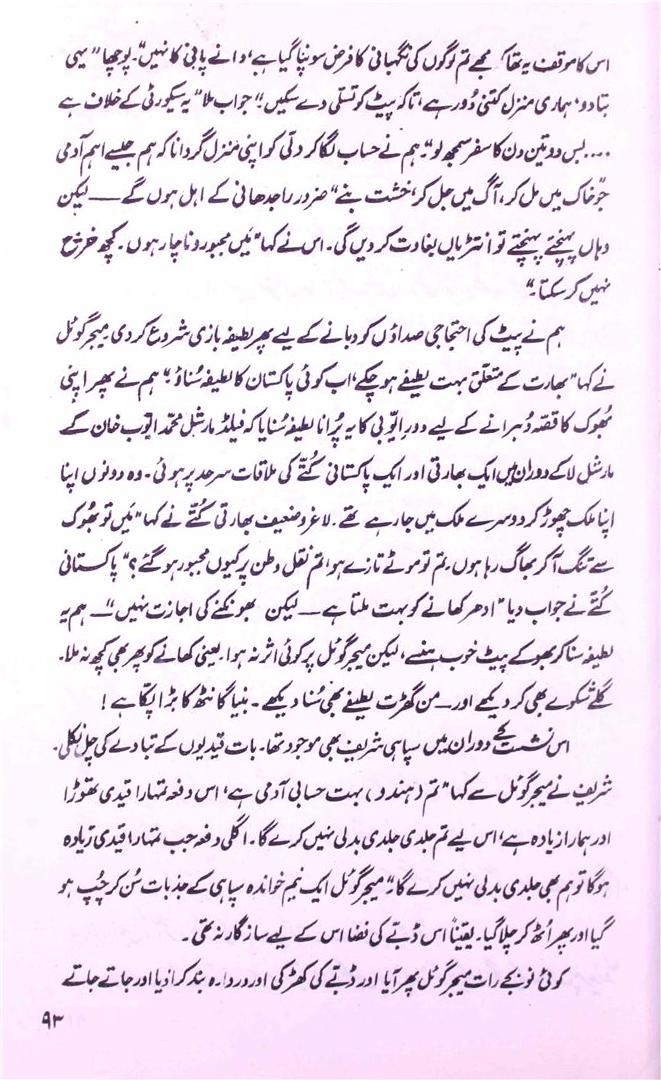 اس کا موقف یہ تھا کہ مجھے تم لوگوں کی نگہبانی کا فرض سونپا گیا ہے، دانے پانی کا نہیں"۔ پوچھا "یہی
بتا دو، ہماری منزل کتنی دُور ہے، تاکہ پیٹ کو تسلی دے سکیں"؛ جواب ملا "یہ سیکورٹی کے خلاف ہے
.... بس دو تین دن کا سفر سمجھ لو"۔ ہم نے حساب لگا کر دلّی کو اپنی منزل گردانا کہ ہم جیسے اہم آدمی
جو خاک میں مل کر، آگ میں جل کر، "خشت بنے" ضرور راجدھانی کے اہل ہوں گے ـــــ لیکن
وہاں پہنچتے پہنچتے تو انتڑیاں بغاوت کر دیں گی۔ اس نے کہا "میں مجبور و ناچار ہوں۔ کچھ خرچ
نہیں کر سکتا۔"
ہم نے پیٹ کی احتجاجی صداؤں کو دبانے کے لیے پھر لطیفہ بازی شروع کر دی۔ میجر گوئل
نے کہا "بھارت کے متعلق بہت لطیفے ہو چکے، اب کوئی پاکستان کا لطیفہ سُناؤ"؛ ہم نے پھر اپنی
بھُوک کا قصّہ دُہرانے کے لیے دورِ ایّوبی کا یہ پُرانا لطیفہ سُنایا کہ فیلڈ مارشل محمد ایوب خان کے
مارشل لا کے دوران میں ایک بھارتی اور ایک پاکستانی کُتّے کی ملاقات سرحد پر ہوئی۔ وہ دونوں اپنا
اپنا ملک چھوڑ کر دوسرے ملک میں جا رہے تھے۔ لاغر و ضعیف بھارتی کُتّے نے کہا "میں تو بھُوک
سے تنگ آ کر بھاگ رہا ہوں۔ تم تو موٹے تازے ہو، تم نقل وطن پر کیوں مجبور ہو گئے؟" پاکستانی
کُتّے نے جواب دیا "ادھر کھانے کو بہت ملتا ہے ـــ لیکن بھونکنے کی اجازت نہیں" ـــ ہم یہ
لطیفہ سنا کر بھوکے پیٹ خوب ہنسے، لیکن میجر گوئل پر کوئی اثر نہ ہوا، یعنی کھانے کو پھر بھی کچھ نہ ملا۔
گلے شکوے بھی کر دیکھے اور ـــ من گھڑت لطیفے بھی سُنا دیکھے۔ بنیا گانٹھ کا بڑا پکّا ہے!
اس نشست کے دوران میں سپاہی شریف بھی موجود تھا۔ بات قیدیوں کے تبادلے کی چل نکلی۔
شریف نے میجر گوئل سے کہا "تم (ہندو) بہت حسابی آدمی ہے، اس دفعہ تمہارا قیدی تھوڑا
اور ہمارا زیادہ ہے، اس لیے تم جلدی جلدی بدلی نہیں کرے گا۔ اگلی دفعہ جب تمہارا قیدی زیادہ
ہو گا تو ہم بھی جلدی بدلی نہیں کرے گا"۔ میجر گوئل ایک نیم خواندہ سپاہی کے جذبات سُن کر چُپ ہو
گیا اور پھر اُٹھ کر چلا گیا۔ یقیناً اس ڈبّے کی فضا اس کے لیے سازگار نہ تھی۔
کوئی نو بجے رات میجر گوئل پھر آیا اور ڈبّے کی کھڑکی اور دروازہ بند کرا دیا اور جاتے جاتے
۹۳